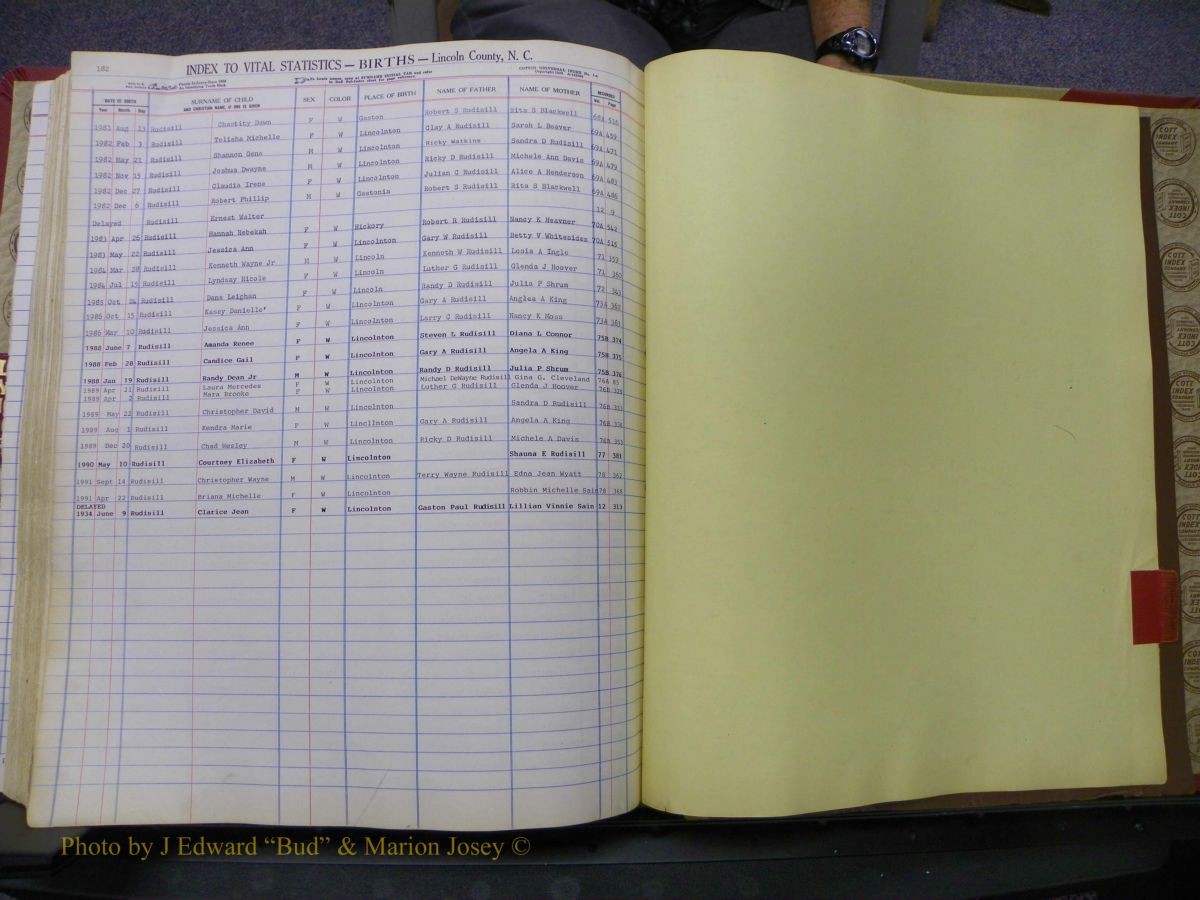 182
INDEX TO VITAL STATISTICS — BIRTHS — Lincoln County, N. C.
DATE OF BIRTH SURNAME OF CHILD SEX COLOR PLACE OF BIRTH NAME OF FATHER NAME OF MOTHER RECORDED
Year Month Day AND CHRISTIAN NAME, IF ONE IS GIVEN Vol. Page
1981 Aug 13 Rudisill Chastity Dawn F W Gaston Robert S Rudisill Rita S Blackwell 68A 516
1982 Feb 3 Rudisill Telisha Michelle F W Lincolnton Clay A Rudisill Sarah L Beaver 69A 459
1982 May 21 Rudisill Shannon Gene M W Lincolnton Ricky Watkins Sandra D Rudisill 69A 471
1982 Nov 15 Rudisill Joshua Dwayne M W Lincolnton Ricky D Rudisill Michele Ann Davis 69A 479
1982 Dec 27 Rudisill Claudia Irene F W Lincolnton Julian C Rudisill Alice A Henderson 69A 481
1982 Dec 6 Rudisill Robert Phillip M W Gastonia Robert S Rudisill Rita S Blackwell 69A 486
Delayed Rudisill Ernest Walter 12 9
1983 Apr 26 Rudisill Hannah Rebekah F W Hickory Robert R Rudisill Nancy K Heavner 70A 542
1983 May 22 Rudisill Jessica Ann F W Lincolnton Gary W Rudisill Betty V Whitesides 70A 515
1984 Mar 28 Rudisill Kenneth Wayne Jr M W Lincoln Kenneth W Rudisill Losia A Ingle 71 359
1984 Jul 15 Rudisill Lyndsay Nicole F W Lincoln Luther G Rudisill Glenda J Hoover 71 360
1985 Oct 24 Rudisill Dana Leighan F W Lincoln Randy D Rudisill Julia P Shrum 72 343
1986 Oct 15 Rudisill Kasey Danielle' F W Lincolnton Gary A Rudisill Anglea A King 73A 360
1986 Mar 10 Rudisill Jessica Ann F W Lincolnton Larry C Rudisill Nancy K Moss 73A 361
1988 June 7 Rudisill Amanda Renee F W Lincolnton Steven L Rudisill Diana L Connor 75B 374
1988 Feb 28 Rudisill Candice Gail F W Lincolnton Gary A Rudisill Angela A King 75B 375
1988 Jan 19 Rudisill Randy Dean Jr M W Lincolnton Randy D Rudisill Julia P Shrum 75B 376
1989 Apr 21 Rudisill Laura Mercedes F W Lincolnton Michael DeWayne Rudisill Gina G. Cleveland 76A 85
1989 Apr 2 Rudisill Mara Brooke F W Lincolnton Luther G Rudisill Glenda J Hoover 76B 329
1989 May 22 Rudisill Christopher David M W Lincolnton Sandra D Rudisill 76B 333
1989 Aug 1 Rudisill Kendra Marie F W Lincllnton Gary A Rudisill Angela A King 76B 336
1989 Dec 20 Rudisill Chad Wesley M W Lincolnton Ricky D Rudisill Michele A Davis 76B 353
1990 May 10 Rudisill Courtney Elizabeth F W Lincolnton Shauna E Rudisill 77 381
1991 Sept 14 Rudisill Christopher Wayne M W Lincolnton Terry Wayne Rudisill Edna Jean Wyatt 78 362
1991 Apr 22 Rudisill Briana Michelle F W Lincolnton Robbin Michelle Sain 78 368
DELAYED
1934 June 9 Rudisill Clarice Jean F W Lincolnton Gaston Paul Rudisill Lillian Vinnie Sain 12 313
COTT INDEX COMPANY
Photo by J Edward “Bud” & Marion Josey ©